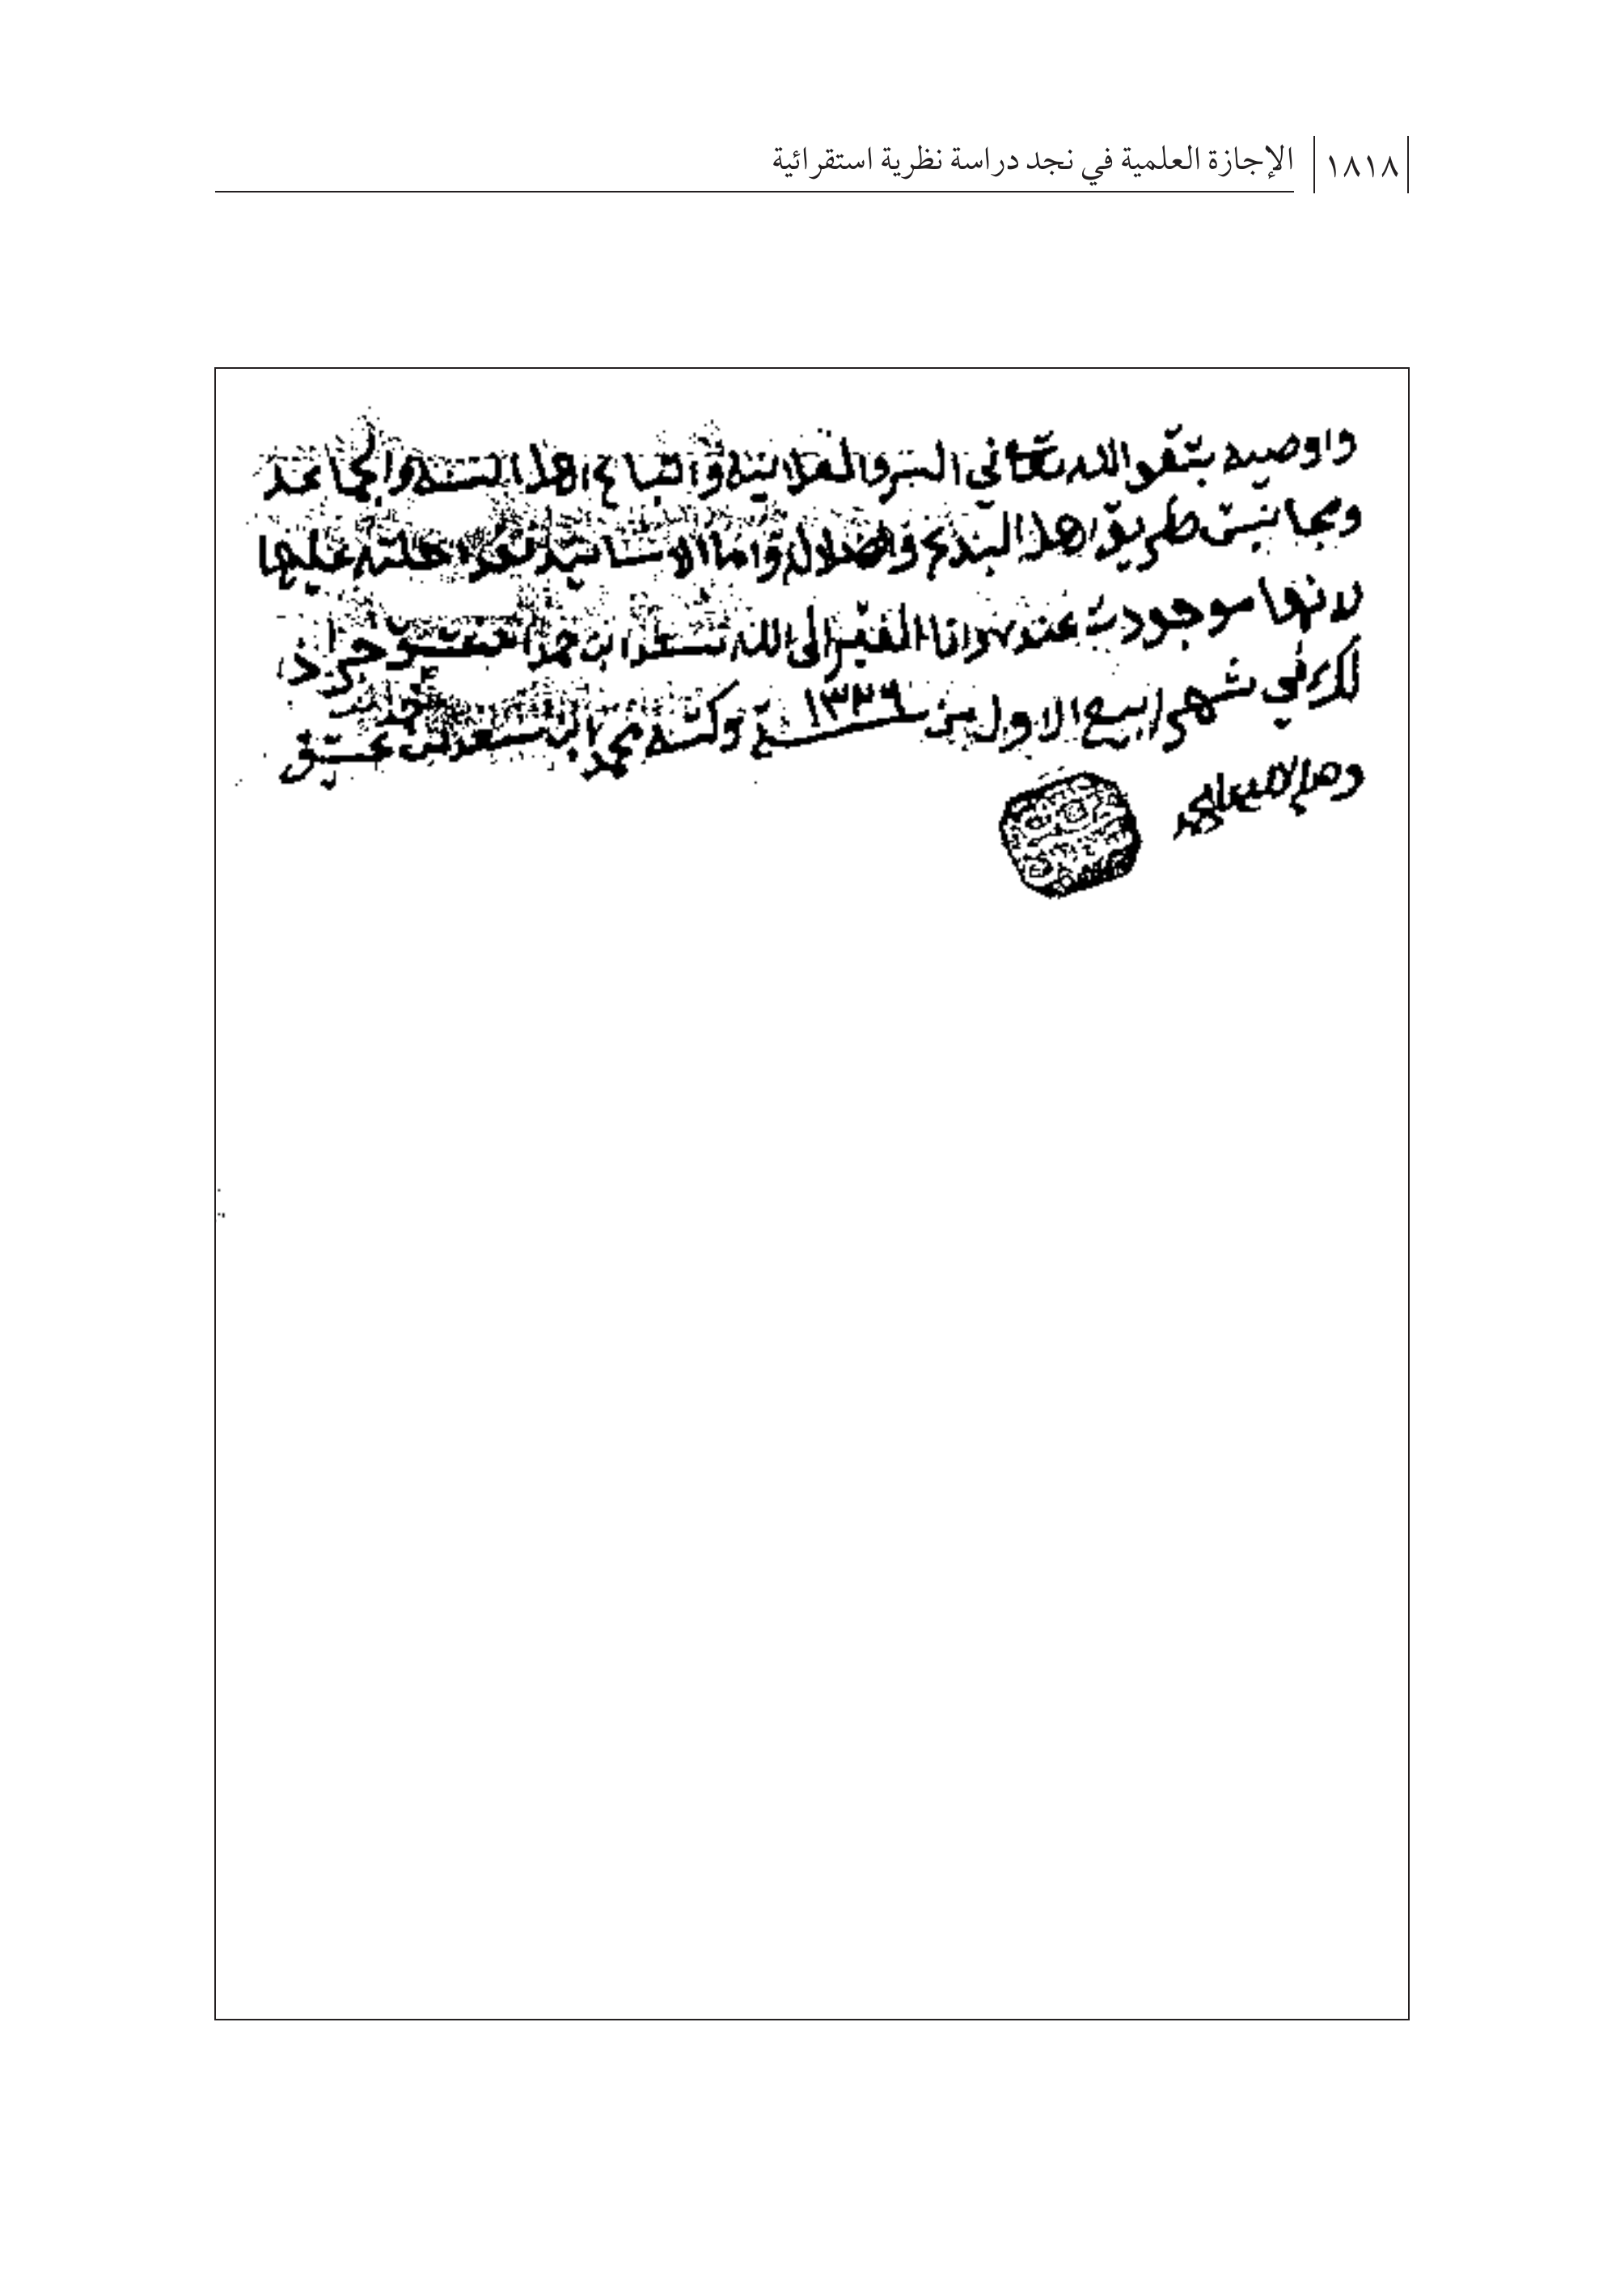 ١٨١٨ الإجازة العلمية في نجد دراسة نظرية استقرائية
واوصيه بتقو الله تعالى في السر والعلانية واتباع اهل السنة والجماعة
ومجانبت طريق اهل البدع والضلالة واما الاسانيد فقد احلته عليها
لانها موجودت عند وانا الفقير الى الله سعد ابن حمد ابن عتيق وحرر ذ
لك في شهر ربيع الاول من سنة ١٣٣٦ وكتبه محمد ابن سعد بن حمد بن عتيق
وصلى الله على محمد